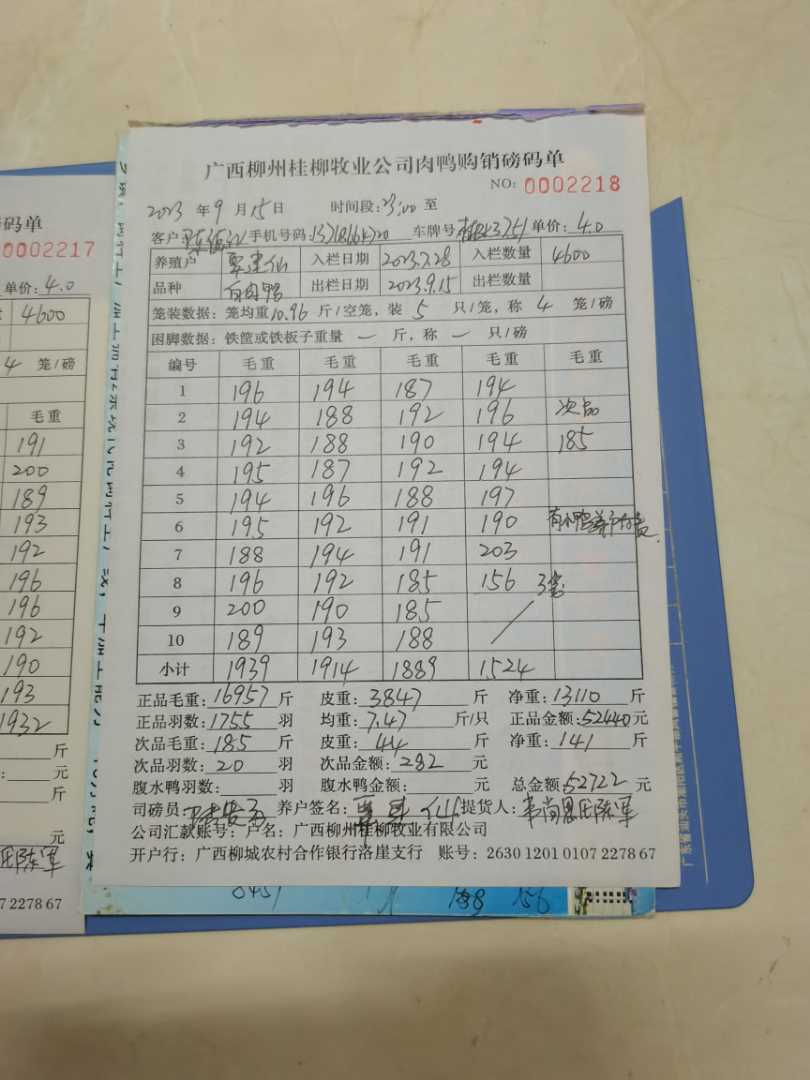 广西柳州桂柳牧业公司肉鸭购销磅码单
NO: 0002218
2023 年 9 月 15 日 时间段: 23:00 至
客户 手机号码: 车牌号 单价: 4.0
养殖户 覃建仙 入栏日期 2023.7.28 入栏数量 4600
品种 白肉鸭 出栏日期 2023.9.15 出栏数量
笼装数据: 笼均重 10.96 斤/空笼, 装 5 只/笼, 称 4 笼/磅
困脚数据: 铁筐或铁板子重量 一 斤, 称 一 只/磅
编号 毛重 毛重 毛重 毛重 毛重
1 196 194 187 194
2 194 188 192 196 次品
3 192 188 190 194 185
4 195 187 192 194
5 194 196 188 197
6 195 192 191 190
7 188 194 191 203
8 196 192 185 156 3笼
9 200 190 185
10 189 193 188
小计 1939 1914 1889 1524
正品毛重: 16957 斤 皮重: 3847 斤 净重: 13110 斤
正品羽数: 1755 羽 均重: 7.47 斤/只 正品金额: 52440 元
次品毛重: 185 斤 皮重: 44 斤 净重: 141 斤
次品羽数: 20 羽 次品金额: 282 元
腹水鸭羽数: 羽 腹水鸭金额: 元 总金额 52722 元
司磅员: 养户签名: 覃建仙 提货人:
公司汇款账号: 户名: 广西柳州桂柳牧业有限公司
开户行: 广西柳城农村合作银行洛崖支行 账号: 2630 1201 0107 2278 67
码单
0002217
单价: 4.0
4600
4 笼/磅
毛重
191
200
189
193
192
196
196
192
190
193
1932
斤
元
斤
元
7 2278 67